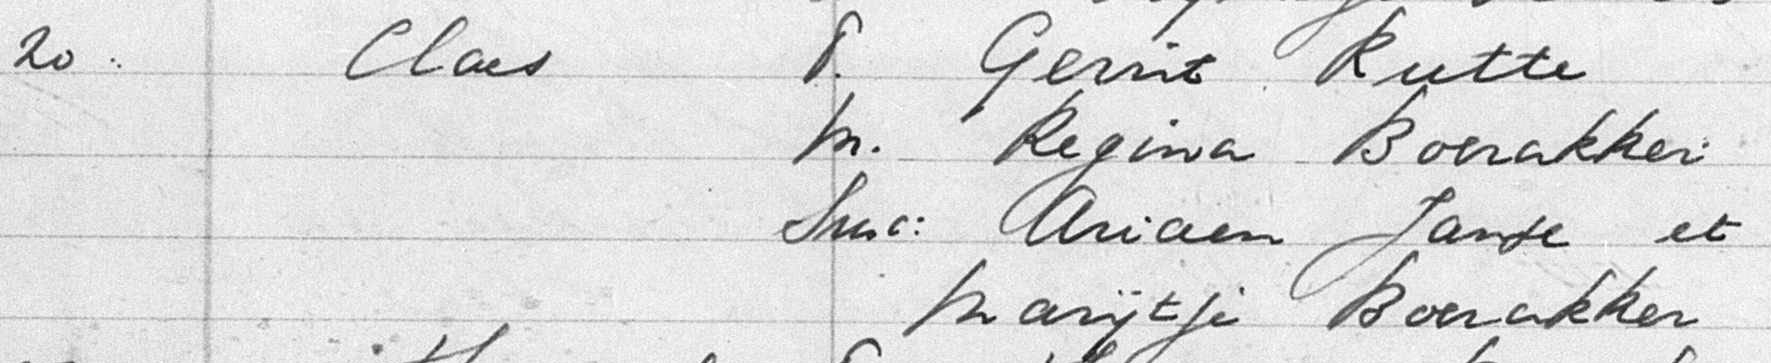 20. Claes P. Gerrit Rutte
M. Regina Boerakker
Susc: Ariaen Janse et
Marijtje Boerakker